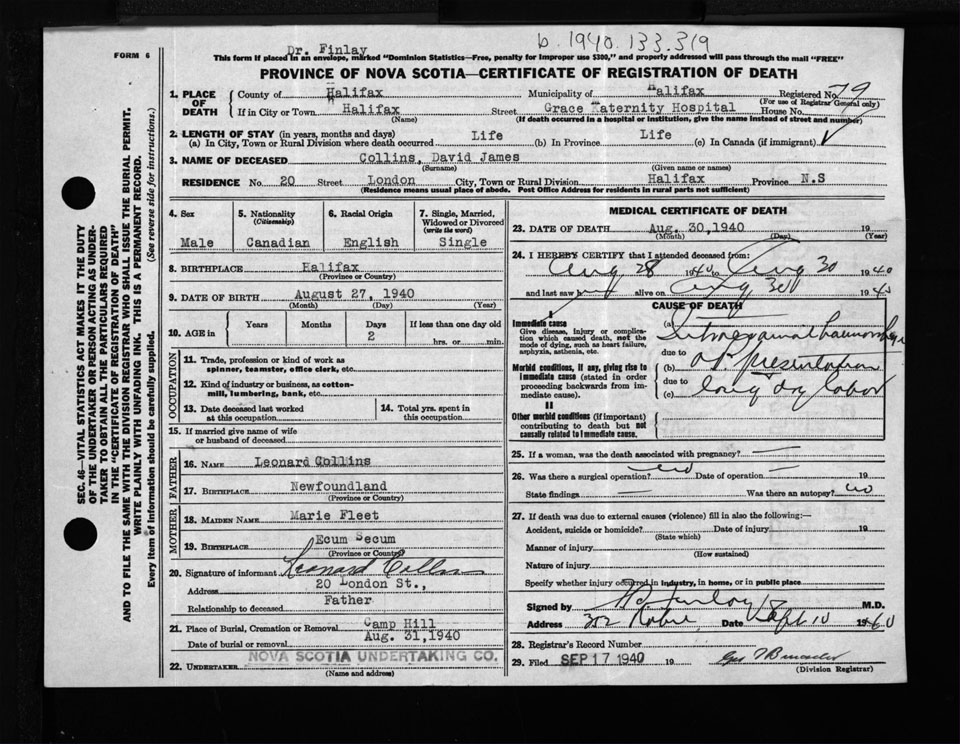 b.1940.133.319
Dr. Finlay
FORM 6
This form if placed in an envelope, marked "Dominion Statistics—Free, penalty for improper use $300," and properly addressed will pass through the mail "FREE"
PROVINCE OF NOVA SCOTIA—CERTIFICATE OF REGISTRATION OF DEATH
1. PLACE OF DEATH
County of Halifax Municipality of Halifax Registered No. 79
(For use of Registrar General only)
If in City or Town Halifax Street Grace Maternity Hospital House No.
(Name) (If death occurred in a hospital or institution, give the name instead of street and number)
2. LENGTH OF STAY (in years, months and days)
(a) In City, Town or Rural Division where death occurred Life (b) In Province Life (c) In Canada (if immigrant)
3. NAME OF DECEASED Collins, David James
(Surname) (Given name or names)
RESIDENCE No. 20 Street London City, Town or Rural Division Halifax Province N.S
(Residence means usual place of abode. Post Office Address for residents in rural parts not sufficient)
4. Sex Male
5. Nationality (Citizenship) Canadian
6. Racial Origin English
7. Single, Married, Widowed or Divorced (write the word) Single
8. BIRTHPLACE Halifax
(Province or Country)
9. DATE OF BIRTH August 27, 1940
(Month) (Day) (Year)
10. AGE in Years Months Days 2 If less than one day old hrs. or min.
OCCUPATION
11. Trade, profession or kind of work as spinner, teamster, office clerk, etc.
12. Kind of industry or business, as cotton-mill, lumbering, bank, etc.
13. Date deceased last worked at this occupation
14. Total yrs. spent in this occupation
15. If married give name of wife or husband of deceased
FATHER
16. NAME Leonard Collins
17. BIRTHPLACE Newfoundland
(Province or Country)
MOTHER
18. MAIDEN NAME Marie Fleet
19. BIRTHPLACE Ecum Secum
(Province or Country)
20. Signature of informant Leonard Collins
Address 20 London St.,
Relationship to deceased Father
21. Place of Burial, Cremation or Removal Camp Hill
Date of burial or removal Aug. 31,1940
22. UNDERTAKER NOVA SCOTIA UNDERTAKING CO.
(Name and address)
MEDICAL CERTIFICATE OF DEATH
23. DATE OF DEATH Aug. 30,1940 19
(Month) (Day) (Year)
24. I HEREBY CERTIFY that I attended deceased from:
Aug 28 1940 to Aug 30 1940
and last saw him alive on Aug 30 1940
CAUSE OF DEATH
I
Immediate cause
Give disease, injury or complication which caused death, not the mode of dying, such as heart failure, asphyxia, asthenia, etc.
(a)
due to
Morbid conditions, if any, giving rise to immediate cause (stated in order proceeding backwards from immediate cause).
(b) O.P. presentation
due to
(c) long dry labor
II
Other morbid conditions (if important) contributing to death but not causally related to immediate cause.
25. If a woman, was the death associated with pregnancy? —
26. Was there a surgical operation? no Date of operation —
State findings — Was there an autopsy? no
27. If death was due to external causes (violence) fill in also the following:—
Accident, suicide or homicide? Date of injury 19
(State which)
Manner of injury
(How sustained)
Nature of injury
Specify whether injury occurred in industry, in home, or in public place
Signed by Finlay M.D.
Address 302 Robie Date Sept 10 1940
28. Registrar's Record Number
29. Filed SEP 17 1940 19
(Division Registrar)
SEC. 46—VITAL STATISTICS ACT MAKES IT THE DUTY
OF THE UNDERTAKER OR PERSON ACTING AS UNDERTAKER TO OBTAIN ALL THE PARTICULARS REQUIRED
IN THE "CERTIFICATE OF REGISTRATION OF DEATH"
AND TO FILE THE SAME WITH THE DIVISION REGISTRAR WHO SHALL ISSUE THE BURIAL PERMIT.
WRITE PLAINLY WITH UNFADING INK. THIS IS A PERMANENT RECORD.
Every item of information should be carefully supplied. (See reverse side for instructions.)